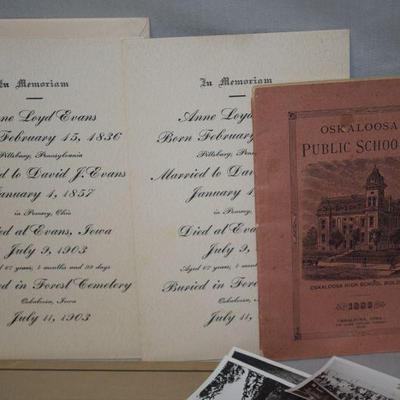 In Memoriam
ne Loyd Evans
February 15, 1836
Pittsburg, Pennsylvania
d to David J. Evans
January 4, 1857
in Pomeroy, Ohio
d at Evans, Iowa
July 9, 1903
Aged 67 years, 4 months and
d in Forest Cemetery
Oskaloosa, Iowa
July 11, 1903
In Memoriam
Anne Loyd
Born February
Pittsburg, Pennsy
Married to David
January 4
in Pomeroy,
Died at Evans
July 9,
Aged 67 years, 4 months
Buried in Fores
Oskaloosa, Iowa
July 11, 1903
OSKALOOSA
PUBLIC SCHOO
OSKALOOSA HIGH SCHOOL BUILD
OSKALOOSA, IOWA